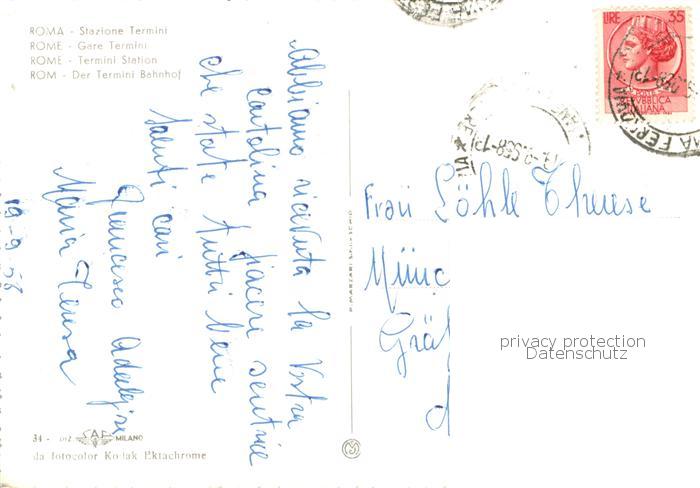 ROMA - Stazione Termini
ROME - Gare Termini
ROME - Termini Station
ROM - Der Termini Bahnhof
Abbiamo ricevuta la Vostra
cartolina piacere sentire
che state tutti bene
Saluti cari
Francesco
Maria Teresa
19-9-58
34 -
SAF MILANO
da fotocolor Kodak Ektachrome
LIRE 35
REPUBBLICA
ITALIANA
Fraü Löhle Therese
Münc
Gräf
d
privacy protection
Datenschutz